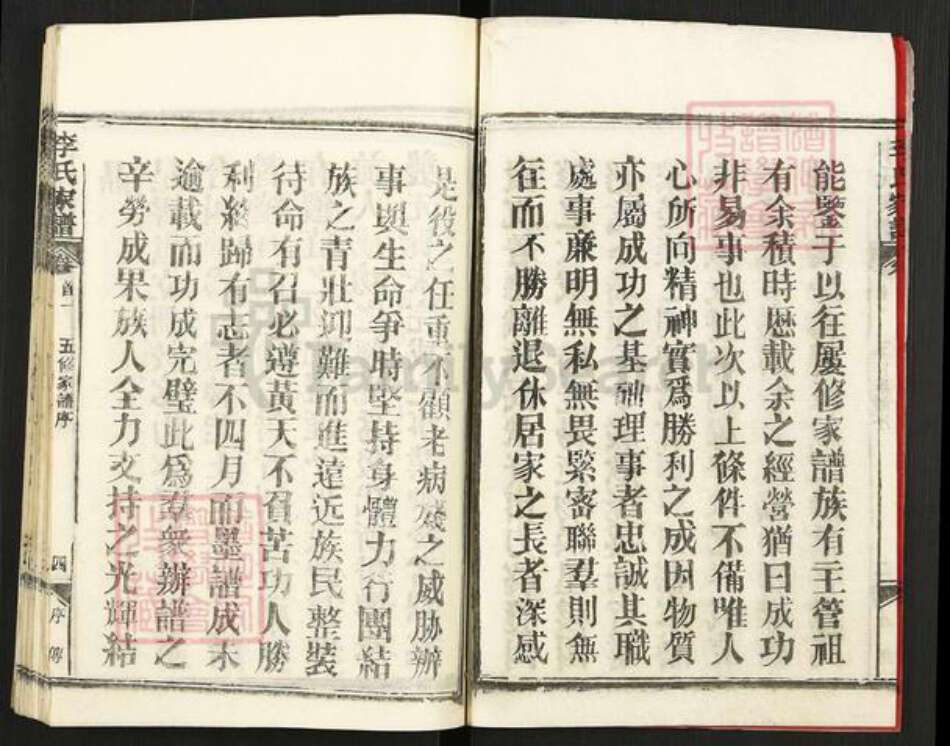 能鑒于以往屢修家譜族有主管祖
有余積時歷載余之經營猶曰成功
非易事也此次以上條件不備唯人
心所向精神實爲勝利之成因物質
亦屬成功之基礎理事者忠誠其職
處事廉明無私無畏緊審聯羣則無
往而不勝離退休居家之長者深感
是役之任重不顧老病殘之威脅辦
事與生命爭時堅持身體力行團結
族之青壯迎難而進遠近族民整裝
待命有召必遵黃天不負苦功人勝
利終歸有志者不四月而墨譜成未
逾載而功成完璧此爲羣衆辦譜之
辛勞成果族人全力支持之光輝結
李氏家譜 卷首一 五修家譜序 四 序
FamilySearch